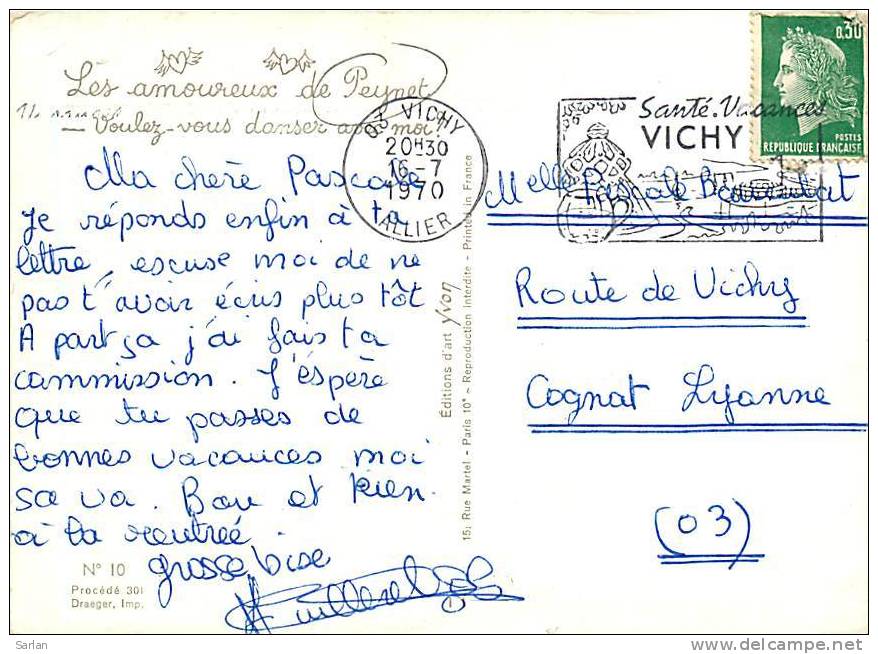 Les amoureux de Peynet
— Voulez-vous danser avec moi ?
Ma chère Pascale
Je réponds enfin à ta
lettre, escuse moi de ne
pas t'avoir écris plus tôt
A part ça j'ai fais ta
commission. J'éspère
que tu passes de
bonnes vacances moi
sa va. Bon et bien
à la rentrée
grosse bise
N° 10
Procédé 301
Draeger, Imp.
03 VICHY
20H30
16-7
1970
ALLIER
Santé.Vacances
VICHY
0,30
POSTES
REPUBLIQUE FRANÇAISE
Editions d'art Yvon
15, Rue Martel - Paris 10e - Reproduction Interdite - Printed in France
Melle Pascale
Route de Vichy
Cognat Lyonne
(03)
Sarlan
http://www.delcampe.net